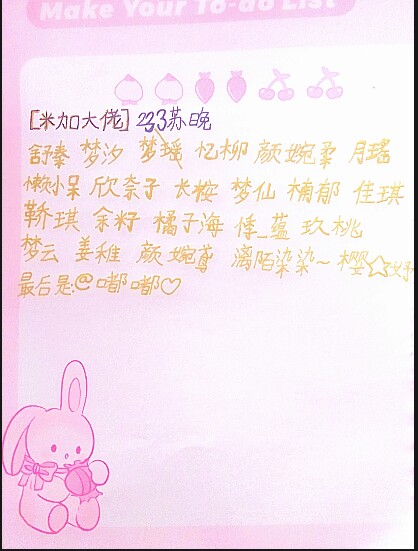 Make Your To-do List
[米加大佬] 233苏晚
舒秦 梦汐 梦瑶 忆柳 颜婉柔 月瑶
懒小呆 欣奈子 长桉 梦仙 楠郁 佳琪
轿琪 余籽 橘子海 悸_蕴 玖桃
梦云 姜稚 颜婉鸢 离陌染染~ 樱☆妤
最后是:@嘟嘟♡